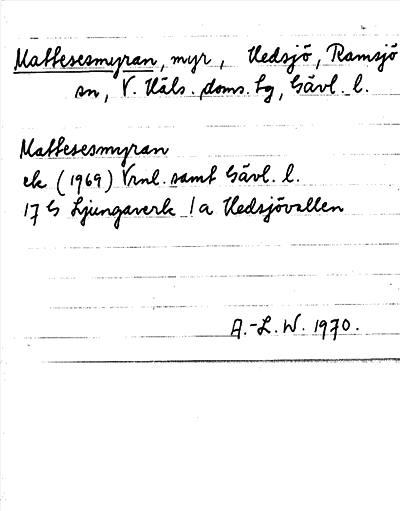 Mattesesmyran, myr, Hedsjö, Ramsjö
sn, V. Häls. doms. tg, Gävl. l.
Mattesesmyran
ek (1969) Vrnl. samt Gävl. l.
17 G Ljungaverk 1a Hedsjövallen
A.-L. W. 1970.